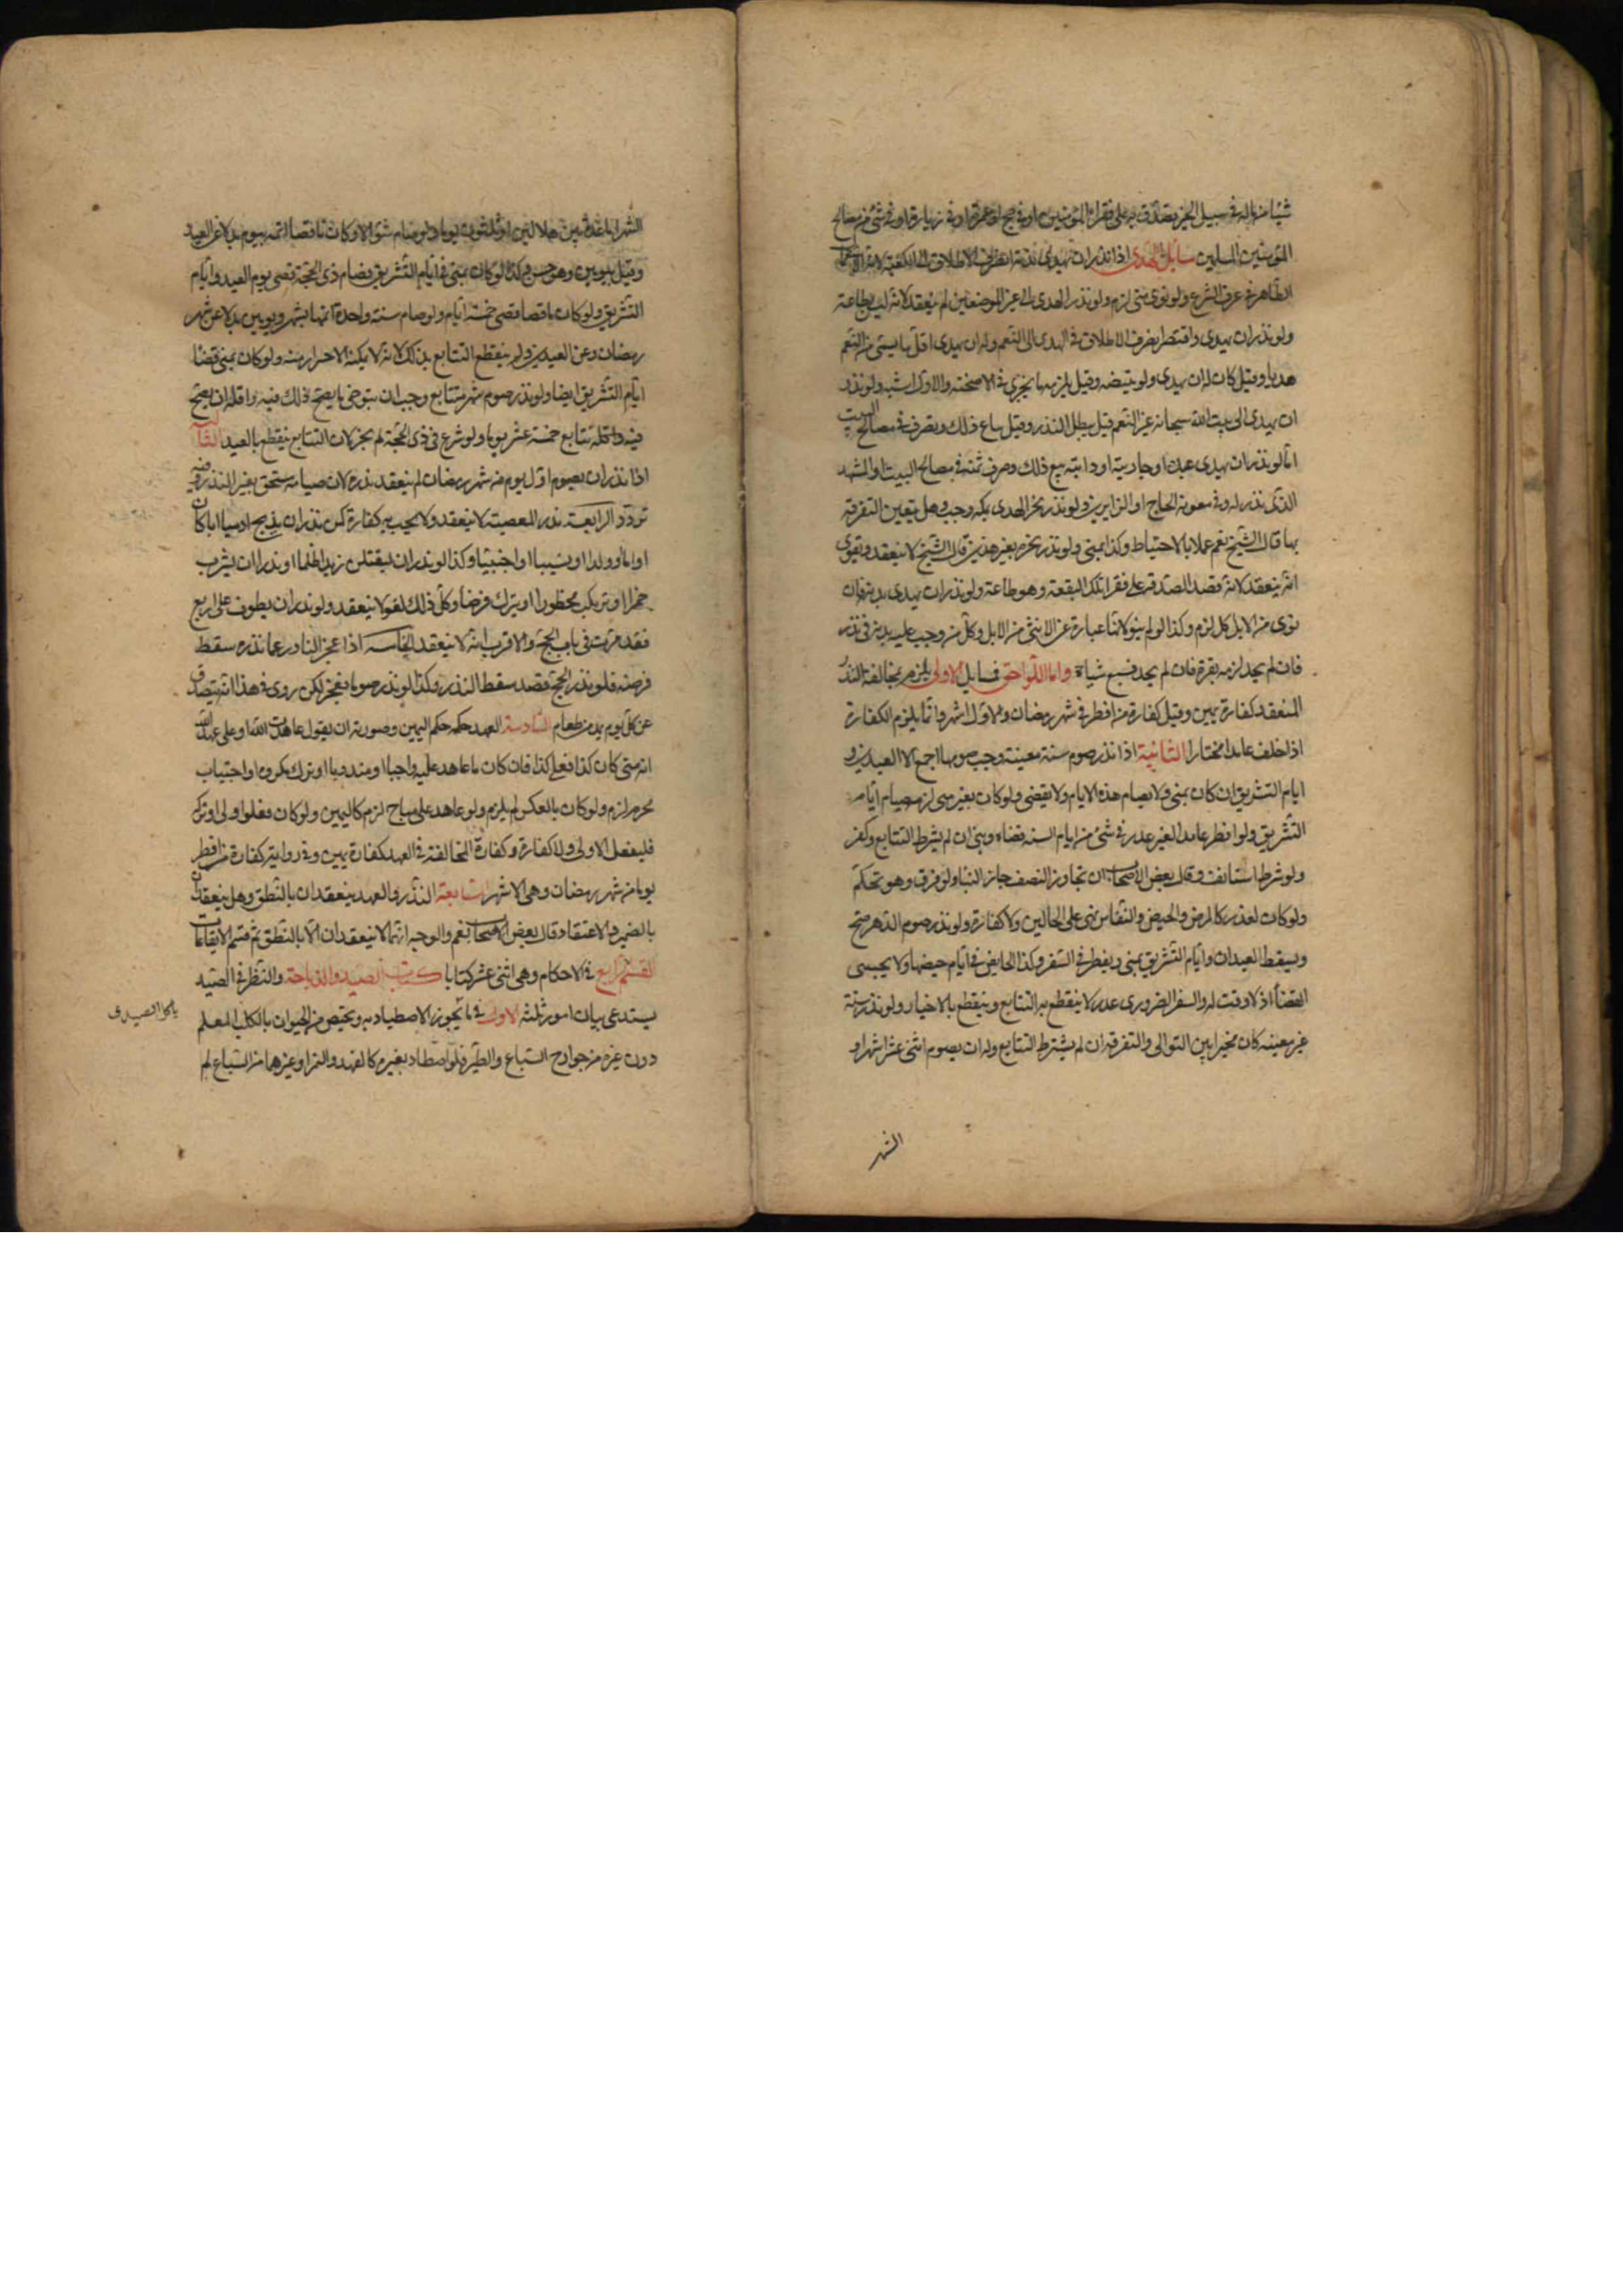 شيئا من ماله في سبيل الخير تصدق به على فقراء المؤمنين او في حج او عمرة او في زيارة او في شئ من مصالح
المؤمنين المسلمين مسائل الهدى اذا نذر ان يهدى بدنة انصرف الاطلاق الى الكعبة لانه الاستعمال
الظاهر في عرف الشرع ولو نوى منى لزم ولو نذر الهدى الى غير الموضعين لم ينعقد لانه ليس بطاعة
ولو نذر ان يهدى واقتصر انصرف الاطلاق في الهدى الى النعم وله ان يهدى اقل ما يسمى من النعم
هديا وقيل كان له ان يهدى ولو بيضة وقيل يلزمه ما يجزى في الاضحية والاول اشبه ولو نذر
ان يهدى الى بيت الله سبحانه غير النعم قيل يبطل النذر وقيل يباع ذلك ويصرف في مصالح البيت
اما لو نذر ان يهدى عبده او جاريته او دابته بيع ذلك وصرف ثمنه في مصالح البيت او المشهد
الذى نذر له وفي معونة الحاج او الزايرين ولو نذر نحر الهدى بمكة وجب وهل يتعين التفرقة
بها قال الشيخ نعم عملا بالاحتياط وكذا بمنى ولو نذر نحره بغير هذين قال الشيخ لا ينعقد ويقوى
انه ينعقد لانه قصد الصدقة على فقراء تلك البقعة وهو طاعة ولو نذر ان يهدى بدنة فان
نوى من الابل كل لزم وكذا لو لم ينو لانها عبارة عن الانثى من الابل وكل من وجب عليه بدنة في نذر
فان لم يجد لزمه بقرة فان لم يجد فسبع شياة واما اللواحق فمسايل الاولى يلزم بمخالفة النذر
المنعقد كفارة يمين وقيل كفارة من افطر في شهر رمضان والاول اشهر وانما يلزم الكفارة
اذا خلف عامدا مختارا الثانية اذا نذر صوم سنة معينة وجب صومها اجمع الا العيدين و
ايام التشريق ان كان بمنى ولا يصام هذه الايام ولا يقضى ولو كان بغير منى لزم صيام ايام
التشريق ولو افطر عامدا لغير عذر في شئ من ايام السنة قضاه وبنى ان لم يشرط التتابع وكفر
ولو شرط استانف وقال بعض الاصحاب ان تجاوز النصف جاز البنا ولو فرق وهو تحكم
ولو كان لعذر كالمرض والحيض والنفاس بنى على الحالين ولا كفارة ولو نذر صوم الدهر صح
ويسقط العيدان وايام التشريق بمنى ويفطر في السفر وكذا الحايض في ايام حيضها ولا يجب
القضا اذ لا وقت له والسفر الضرورى عذر لا ينقطع به التتابع وينقطع بالاختيار ولو نذر سنة
غير معينه كان مخيرا بين التوالى والتفرقة ان لم يشترط التتابع وله ان يصوم اثنى عشر شهرا و
الشهر
الشهر اما عدة بين هلالين او ثلثون يوما ولو صام شوالا وكان ناقصا اتمه بيوم بدلا عن العيد
وقيل بيومين وهو حسن وكذا لو كان بمنى في ايام التشريق فصام ذى الحجة قضى يوم العيد وايام
التشريق ولو كان ناقصا قضى خمسة ايام ولو صام سنة واحدة اتمها بشهر ويومين بدلا عن شهر
رمضان وعن العيدين ولم ينقطع التتابع بذلك لانه لا يمكنه الاحتراز منه ولو كان بمنى قضا
ايام التشريق ايضا ولو نذر صوم شهر متتابع وجب ان يتوخى ما يصح ذلك فيه واقله ان يصح
فيه واقله تتابع خمسة عشر يوما ولو شرع في ذى الحجة لم يجز لان التتابع ينقطع بالعيد الثالثة
اذا نذر ان يصوم اول يوم من شهر رمضان لم ينعقد نذره لان صيامه مستحق بغير النذر وفيه
تردد الرابعة نذر المعصية لا ينعقد ولا يجب به كفارة كمن نذر ان يذبح ادميا ابا كان
او اما او ولدا او نسيبا او اجنبيا وكذا لو نذر ان ليقتلن زيدا ظلما او نذر ان يشرب
خمرا او يرتكب محظورا او يترك فرضا وكل ذلك لغو لا ينعقد ولو نذر ان يطوف على اربع
فقد مرت في باب الحج والاقرب انه لا ينعقد الخامسة اذا عجز الناذر عما نذره سقط
فرضه فلو نذر الحج فصد سقط النذر وكذا لو نذر صوما فعجز لكن روى في هذا انه يتصدق
عن كل يوم بمد من طعام السادسة العهد حكمه حكم اليمين وصورته ان يقول عاهدت الله او على عهد الله
انه متى كان كذا فعلى كذا فان كان ما عاهد عليه واجبا او مندوبا او ترك مكروه او اجتناب
محرم لزم ولو كان بالعكس لم يلزم ولو عاهد على مباح لزم كاليمين ولو كان فعله اولى او تركه
فليفعل الاولى ولا كفارة وكفارة المخالفة في العهد كفارة يمين وفي رواية كفارة من افطر
يوما من شهر رمضان وهى الاشهر السابعة النذر والعهد ينعقدان بالنطق وهل ينعقدان
بالضمير والاعتقاد قال بعض الاصحاب نعم والوجه انهما لا ينعقدان الا بالنطق تم قسم الايقاعات
القسم الرابع في الاحكام وهى اثنى عشر كتابا كتاب الصيد والذباحة والنظر في الصيد
يستدعى بيان امور ثلثه الاول في ما يجوز الاصطياد به ويختص من الحيوان بالكلب المعلم
دون غيره من جوارح السباع والطير فلو اصطاد بغيره كالفهد والنمر او غيرهما من السباع لم